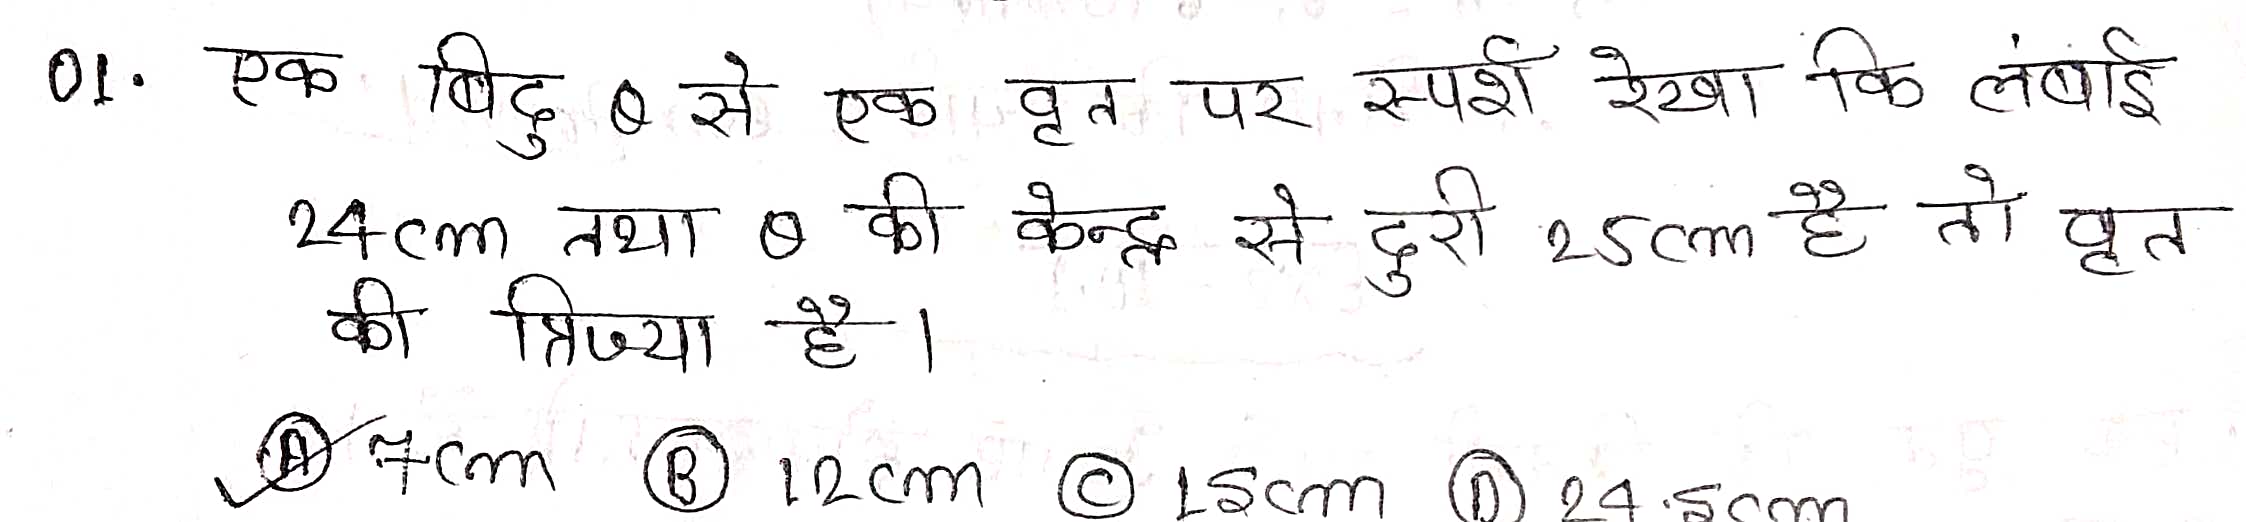 01. एक बिंदु Q से एक वृत पर स्पर्श रेखा कि लंबाई
24cm तथा Q की केन्द्र से दुरी 25cm है तो वृत
की त्रिज्या है।
(A) 7cm (B) 12cm (C) 15cm (D) 24.5cm